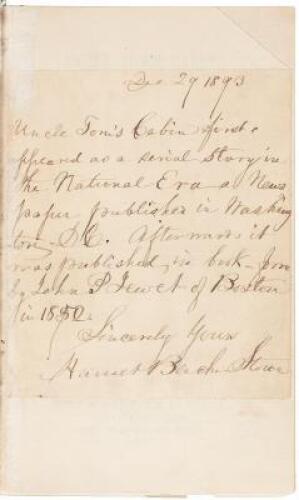 Dec 29 1893
Uncle Tom's Cabin first a
ppeared as a serial story in
the National Era a News
paper published in Washing
ton D.C. Afterwards it
was published in book form
by John P Jewet of Boston
in 1852
Sincerely Yours
Harriet Beecher Stowe